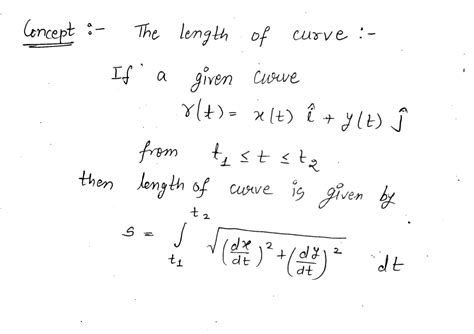 Concept :- The length of curve :-
If a given curve
r(t) = x(t) î + y(t) ĵ
from t₁ ≤ t ≤ t₂
then length of curve is given by
s = ∫_{t₁}^{t₂} √((dx/dt)² + (dy/dt)²) dt